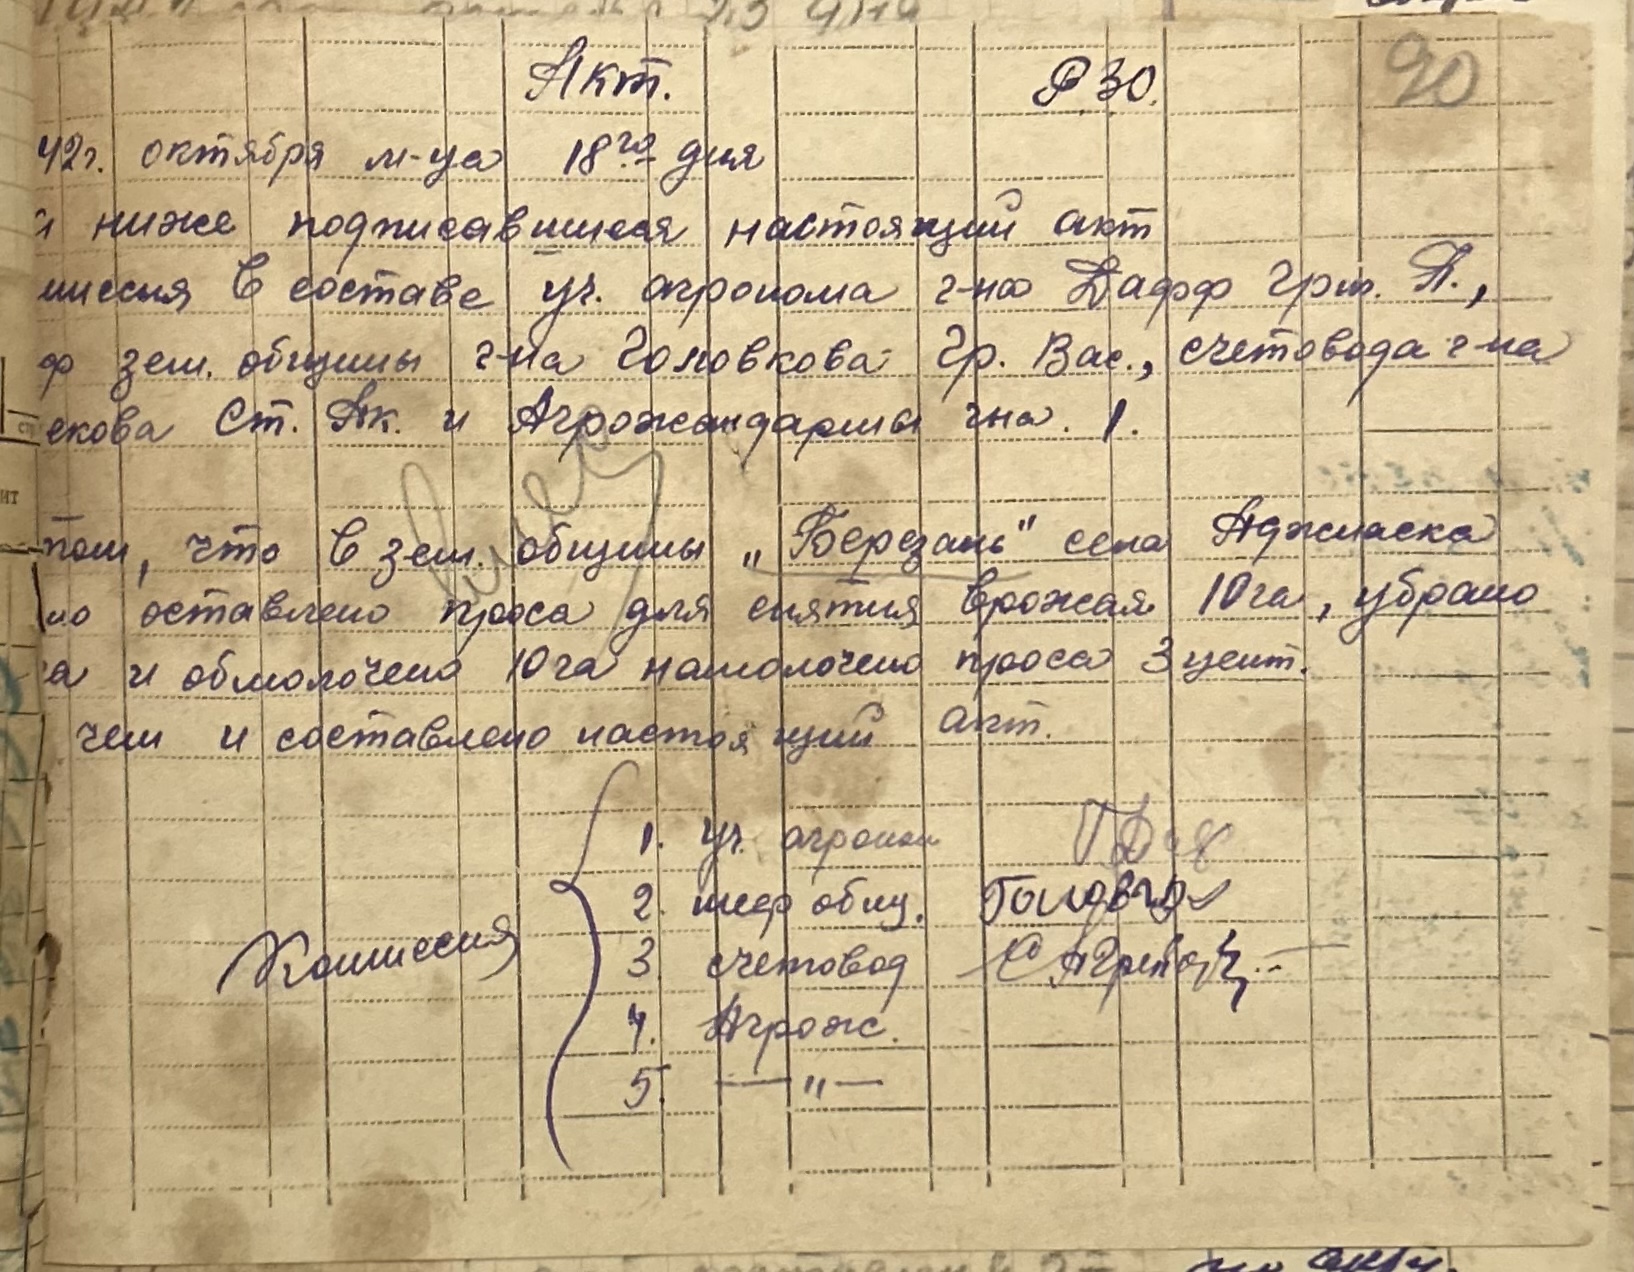 Акт. Р.30. 90
42г. октября м-ца 18го дня
ниже подписавшиеся настоящий акт
миссия в составе уч. агронома г-на Дафф Грт. П.,
ф зем. общины г-на Головкова Гр. Вас., счетовода г-на
екова Ст. Ак. и Агрожандармы г-на. 1.
том, что в зем. общины „Березань" села Аджиаска
но оставлено проса для снятия врожая 10га, убрано
а и обмолочено 10га намолочено проса 3 цент.
чем и составлено настоящий акт.
Комиссия
1. уч. агроном
2. шеф общ.
3. счетовод
4. Агрож.
5. —"—